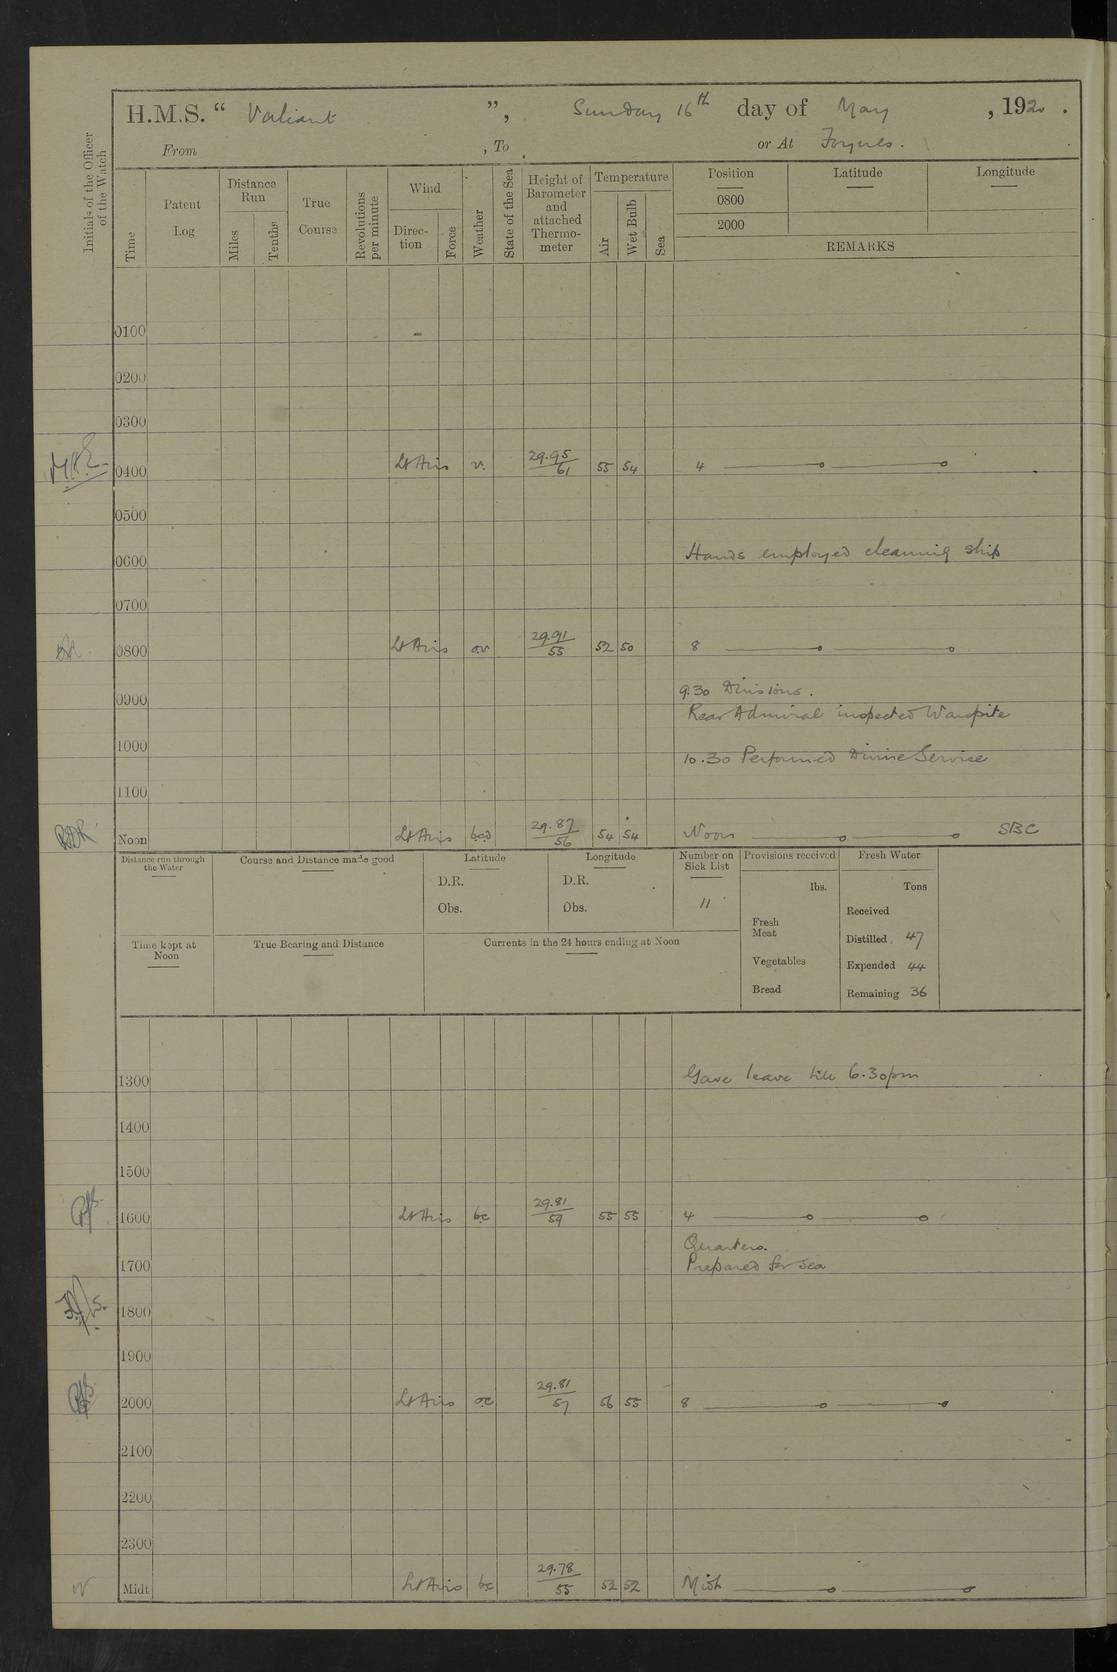 H.M.S. “ Valiant ”, Sunday 16th day of May , 1920 .
From , To . or At Foynes .
Initials of the Officer of the Watch
Time
Patent Log
Distance Run
Miles
Tenths
True Course
Revolutions per minute
Wind
Direction
Force
Weather
State of the Sea
Height of Barometer and attached Thermometer
Temperature
Air
Wet Bulb
Sea
Position
Latitude
Longitude
0800
2000
REMARKS
0100
0200
0300
0400 Lt Airs v. 29.95/61 55 54 4
0500
0600 Hands employed cleaning ship
0700
0800 Lt Airs ov 29.91/55 52 50 8
0900 9.30 Divisions .
Rear Admiral inspected Warspite
1000 10.30 Performed Divine Service
1100
Noon Lt Airs bcd 29.87/56 54 54 Noon SBC
Distance run through the Water
Course and Distance made good
Latitude
D.R.
Obs.
Longitude
D.R.
Obs.
Number on Sick List
11
Provisions received
lbs.
Fresh Meat
Vegetables
Bread
Fresh Water
Tons
Received
Distilled 47
Expended 44
Remaining 36
Time kept at Noon
True Bearing and Distance
Currents in the 24 hours ending at Noon
1300 Gave leave till 6.30pm
1400
1500
1600 Lt Airs bc 29.81/59 55 55 4
Quarters.
1700 Prepared for sea
1800
1900
2000 Lt Airs oc 29.81/57 56 55 8
2100
2200
2300
Midt Lt Airs bc 29.78/55 52 52 Midt